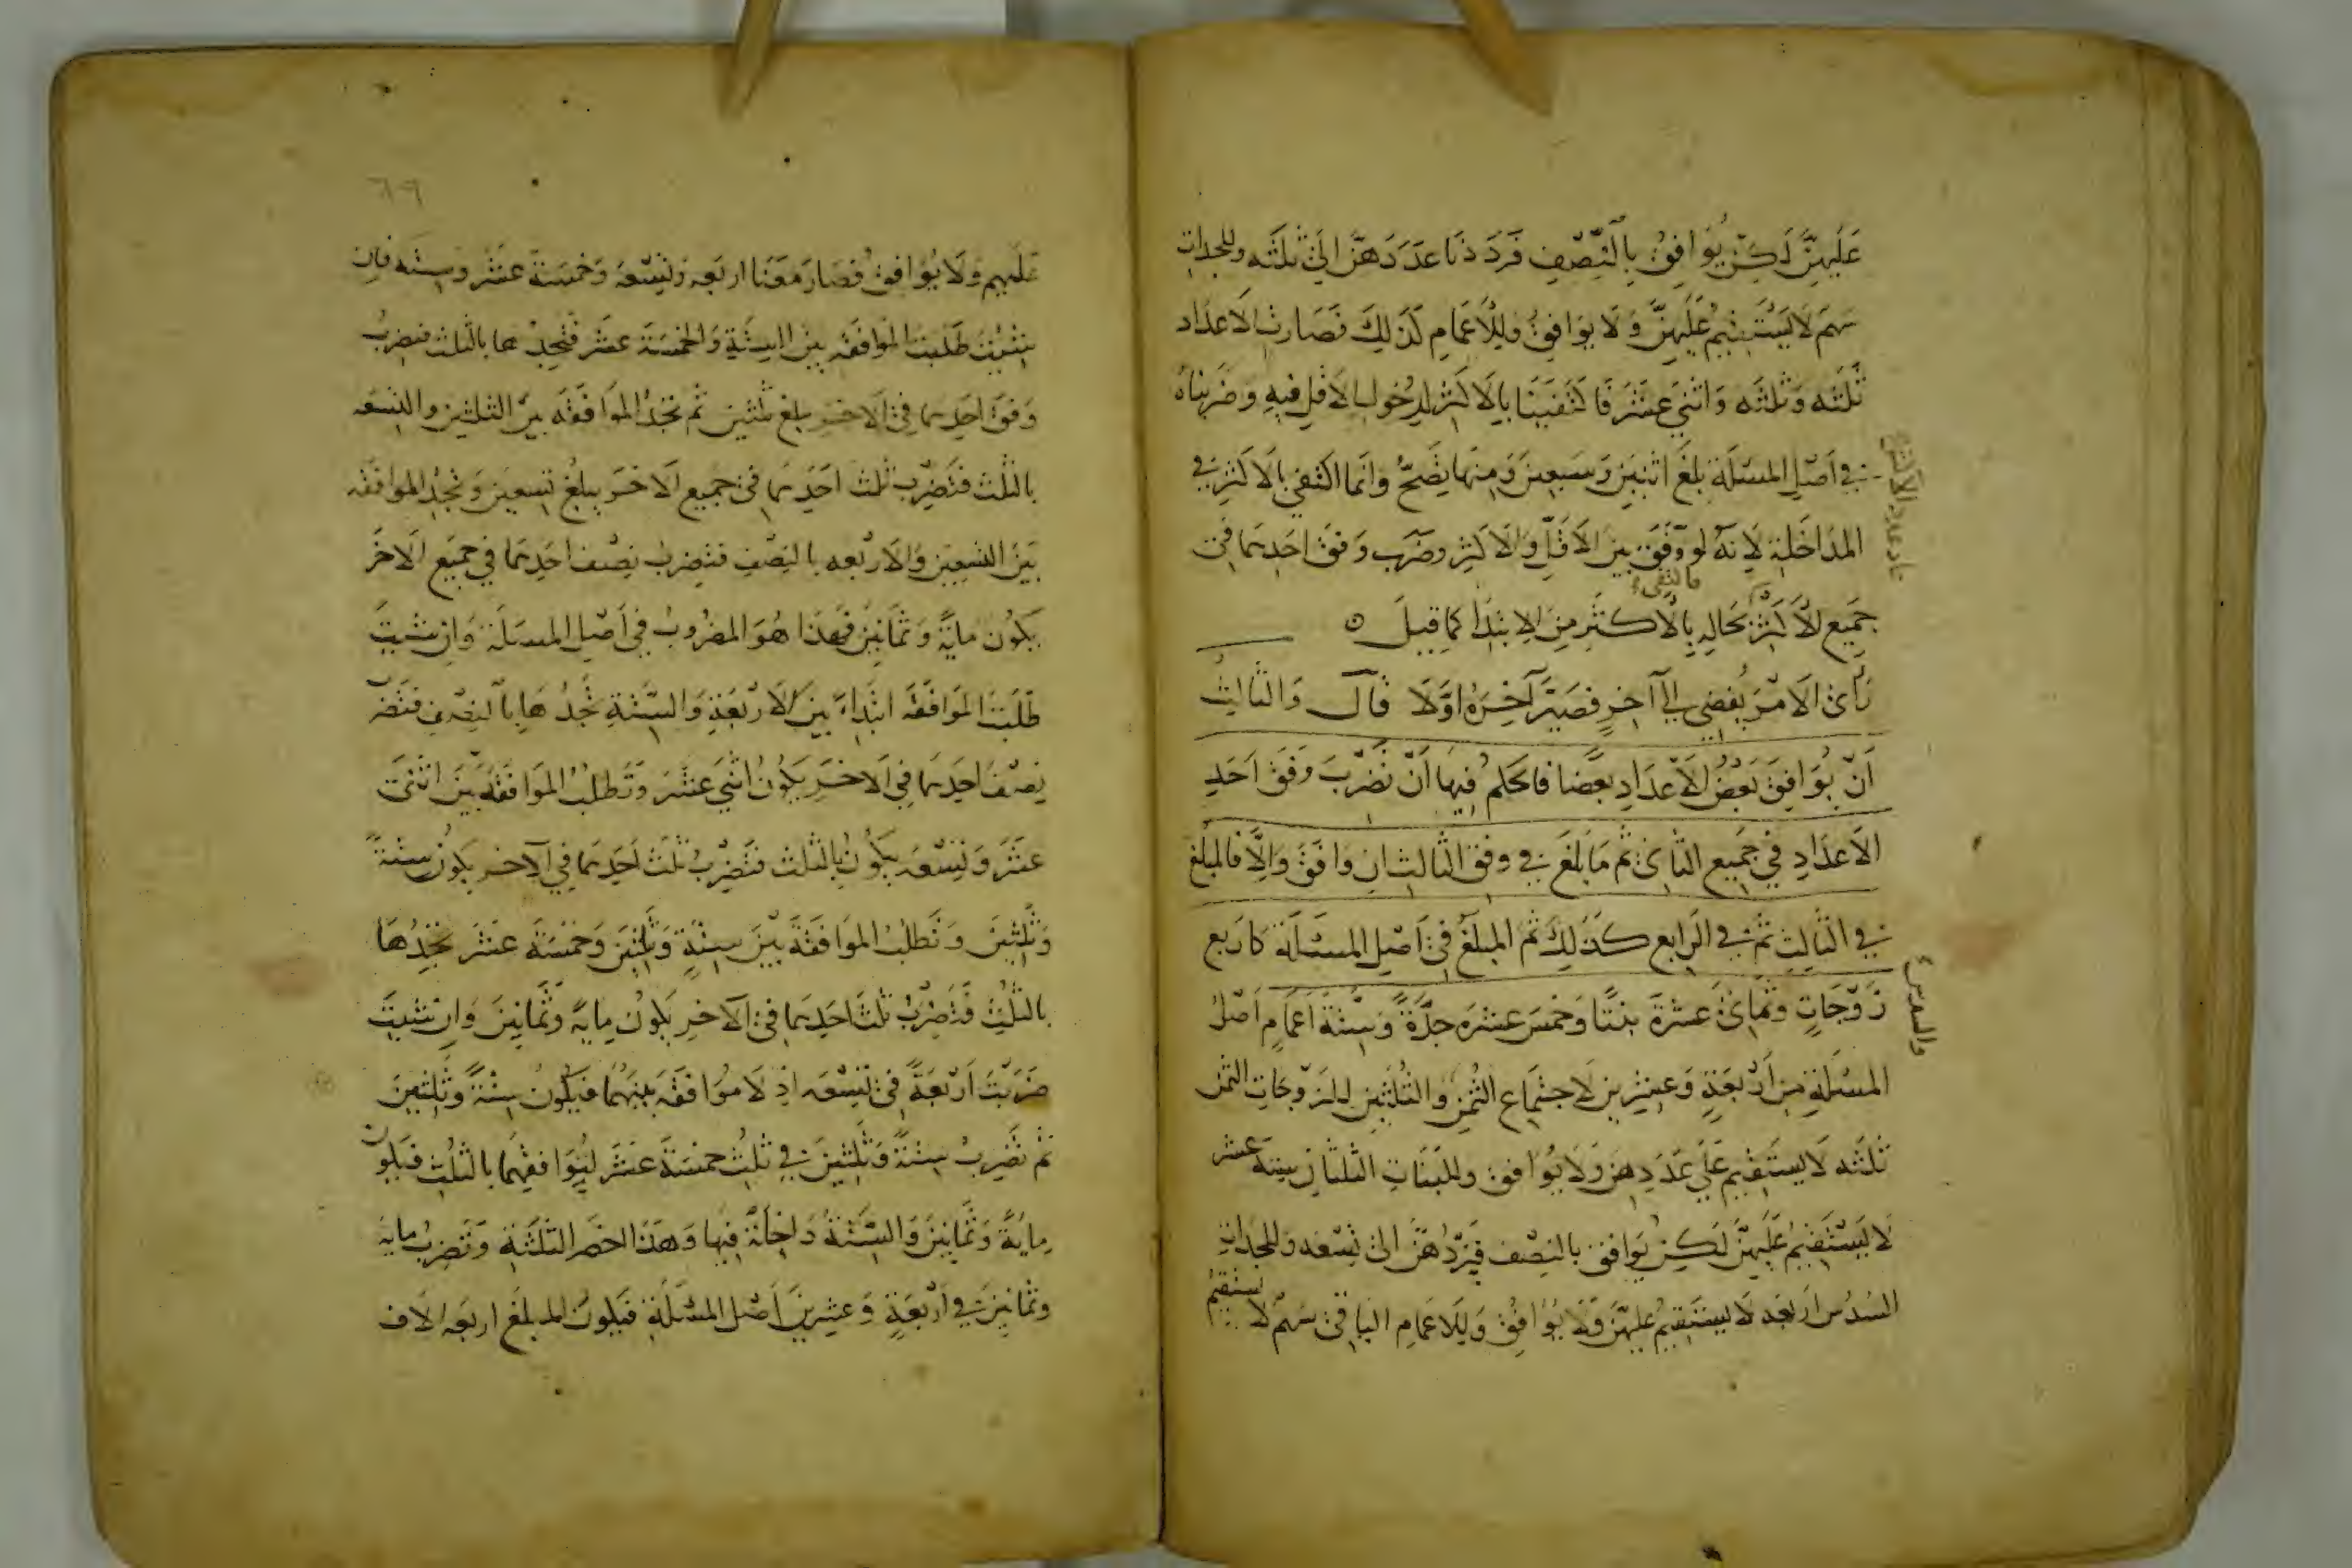 عَلَيهِنَّ لَكِنْ يُوَافِقُ بِالنِّصْفِ فَرَدَدْنَا عَدَدَهُنَّ إِلَى ثَلثَه وللجدات
سَهم لَا يَسْتَقِيمُ عَلَيهِنَّ وَلَا يوَافِقُ وَلِلْأَعمَامِ كَذلِكَ فَصَارَت الأَعدَاد
ثَلثَه وَثَلثَه وَاثْنَى عَشَرَ فَاكْتَفَينَا بِالأَكثَرِ لِدُخُولِ الأَقَلِ فِيهِ وَضَرَبنَاهُ
فِي أَصْلِ المسئلَةِ بَلَغَ اثنَينِ وَسَبعِينَ وَمِنهَا تَصِحُّ وَإِنمَا اكتفي بِالأَكثَرِ فِي
المدَاخَلَةِ لِأَنهُ لو وُفِّقَ بَينَ الأَقَلِّ وَالأَكثَرِ وضَرَب وَفقَ احَدِهمَا فِي
جَمِيعِ الأخر
فاكتفى
بحَالِهِ بِالأَكثَرِ مِنَ الابتِدَا كمَا قِيلَ ٥
رَأَى الأَمْرَ يُفْضِي إِلَى آخِرٍ فَصَيَّرَ آخِرَهُ أَوَّلَا قَالَ وَالثَالِثُ
أَنْ يُوَافِقَ بَعْضُ الأَعْدَادِ بَعْضًا فَالحكم فِيهَا أَنْ تَضْرِبَ وَفقَ أَحَدِ
الأَعدَادِ فِي جَمِيعِ الثَّانِي ثُمَّ مَا بَلَغَ فِي وفق الثالث إن وَافَقَ وَإِلَّا فَالمبلغ
فِي الثَّالِثِ ثم فِي الرَّابِعِ كَذَلِكَ ثُمَّ المبلَغَ فِي أَصْلِ المسئَلَةِ كَأَربع
زَوْجَاتٍ وَثَمَانِي عَشرَةَ بِنتًا وَخَمسَ عَشرَةَ جدَّةً وَسِتَّةِ أَعمَامٍ أَصْلُ
المسئَلَةِ مِن أَرْبعَةٍ وَعِشرِينَ لِاجتِمَاعِ الثُّمنِ وَالثُّلُثَينِ لِلزوجَاتِ الثمن
ثَلثَه لَا يستَقِيمُ عَلَى عَدَدِهنَّ وَلَا يُوَافق وللبَنَاتِ الثلثان ستة عشر
لَا يَسْتَقِيمُ عَلَيهِنَّ لَكِن يُوَافق بالنِصْف فَيَرُدُّهُنَّ الى تِسْعَه وَللجَدَّاتِ
السُّدُس أَربعه لَا يستَقِيمُ عَلَيهِنَّ وَلَا يُوَافِقُ وَلِلأَعمَامِ البَاقِي سَهمٌ لَا يستقيم
والسدس
٦٩
عَلَيهِم وَلَا يُوَافقُ فَصَارَ مَعَنَا اربَعه وَتِسْعَه وَخَمسَة عَشَر وسِتَه فان
شئتَ طَلَبتَ الموَافَقَه بَينَ السِتَّةِ وَالخمسَةَ عَشَر فَتجِدهَا بالثلث فتضرب
وَفقَ احَدِهمَا فِي الأخرِ بلغ ثلثين ثم تجِدُ الموَافَقَه بينَ الثلثين والتسعه
بالثُّلث فَتَضْرِب ثلث احَدِهمَا فِي جَمِيعِ الأخر يبلغ تِسعين وَتجِدُ الموافقه
بَينَ التسعِينَ وَالأَرْبعه بالنصف فتضرب نصْف احَدِهمَا فِي جَمِيعِ الأخَر
يَكُون مايَةً وَثمَانِينَ فَهذَا هُوَ المضرُوبُ فِي أَصْلِ المسئَلَةِ وَإِن شئتَ
طَلَبتَ الموَافَقَة ابتِدَاءً بَينَ الأَرْبَعَةِ وَالسِّتَّةِ تجِدُهَا بالنصف فتضرب
نِصْفَ احَدِهمَا فِي الأخَرِ يَكُونُ اثنَي عَشَرَ وَتَطلُبُ الموَافَقَةَ بَينَ اثْنَي
عَشَرَ وَتِسْعَه يكُون بِالثلث فَتضرِبُ ثلثَ احَدِهمَا فِي الآخر يكونُ سِتَّةً
وَثلثِينَ وَتَطلُبُ الموَافَقَةَ بَينَ سِتَّةٍ وَثلثِينَ وَخمسَة عَشَر تجِدُهَا
بالثُلُثِ فَتَضْرِبُ ثلثَ احَدِهمَا فِي الآخرِ يَكُونُ مِايَةً وَثمَانِينَ وَإِن شئتَ
ضَرَبتَ أَرْبَعَةً فِي تِسْعَه إِذ لَا مُوَافَقَه بَينهُمَا فيَكُونُ سِتَّةً وَثلثِينَ
ثم تَضْرِبُ سِتَّةً وَثلثِينَ فِي ثلثِ خمسَةَ عَشَرَ لِتَوَافُقِهِمَا بالثلثِ فيكُون
مِايَةً وَثمَانِينَ وَالسِّتَّةُ دَاخِلَةٌ فِيهَا وَهَذَا اخصَر الثلثَةِ وَتَضرِب مايَة
وثمانِينَ فِي أَرْبَعَةٍ وَعشرِينَ أَصْل المسئَلَةِ فيكُونُ المبلَغُ اربَعَه الَاف